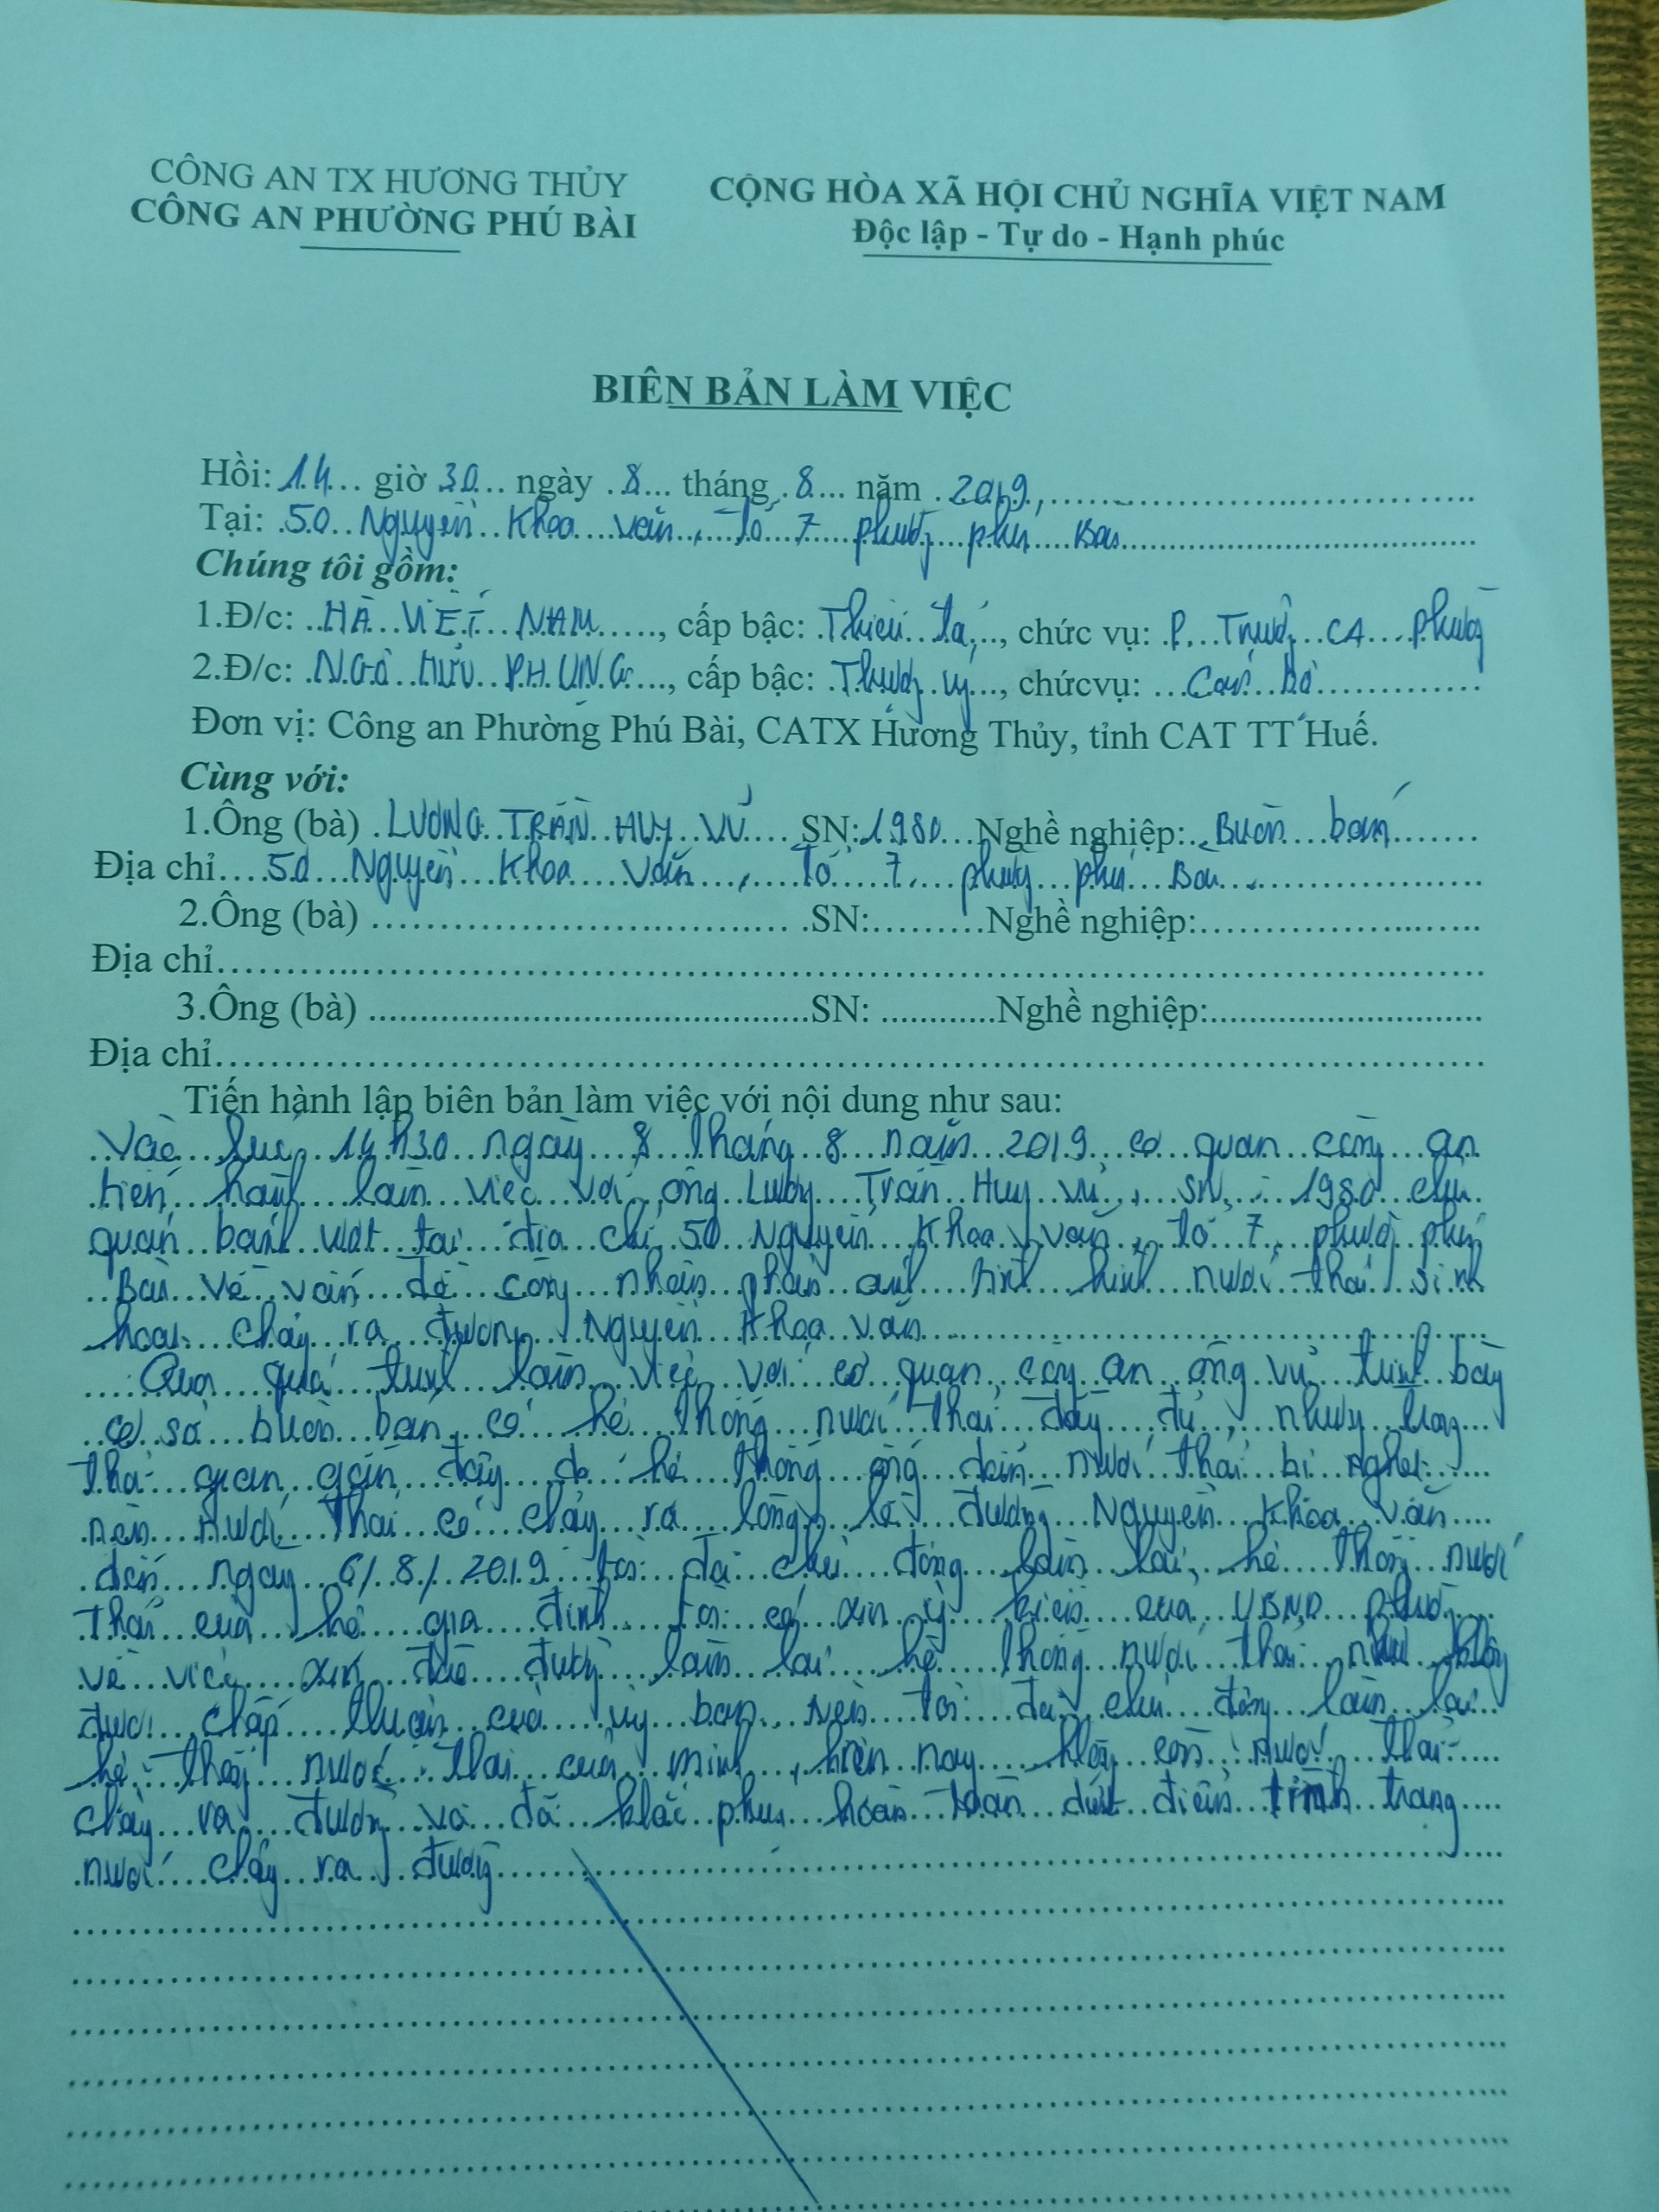 CÔNG AN TX HƯƠNG THỦY
CÔNG AN PHƯỜNG PHÚ BÀI
CỘNG HÒA XÃ HỘI CHỦ NGHĨA VIỆT NAM
Độc lập - Tự do - Hạnh phúc
BIÊN BẢN LÀM VIỆC
Hồi: 14 giờ 30 ngày 8 tháng 8 năm 2019,
Tại: 50 Nguyễn Khoa Văn, Tổ 7 phường phú Bài
Chúng tôi gồm:
1.Đ/c: HÀ VIẾT NAM, cấp bậc: Thiếu tá, chức vụ: P. Trưởng CA phường
2.Đ/c: NGÔ HỮU PHÙNG, cấp bậc: Thượng úy, chứcvụ: Cán bộ
Đơn vị: Công an Phường Phú Bài, CATX Hương Thủy, tỉnh CAT TT Huế.
Cùng với:
1.Ông (bà) LƯƠNG TRẦN HUY VŨ SN: 1980 Nghề nghiệp: Buôn bán
Địa chỉ 50 Nguyễn Khoa Văn, tổ 7, phường phú Bài
2.Ông (bà) SN: Nghề nghiệp:
Địa chỉ
3.Ông (bà) SN: Nghề nghiệp:
Địa chỉ
Tiến hành lập biên bản làm việc với nội dung như sau:
Vào lúc 14h30 ngày 8 tháng 8 năm 2019, cơ quan công an
tiến hành làm việc với ông Lương Trần Huy Vũ, SN: 1980 chủ
quán bánh ướt tại địa chỉ 50 Nguyễn Khoa Văn, tổ 7, phường phú
Bài về vấn đề công nhân phản ánh tình hình nước thải sinh
hoạt chảy ra đường Nguyễn Khoa Văn
Qua quá trình làm việc với cơ quan công an ông Vũ trình bày
cơ sở buôn bán có hệ thống nước thải đầy đủ, nhưng trong
thời gian gần đây do hệ thống ống dẫn nước thải bị nghẹt
nên nước thải có chảy ra lòng lề đường Nguyễn Khoa Văn
đến ngày 6/8/2019 tôi đã chủ động làm lại hệ thống nước
thải của hộ gia đình tôi có xin ý kiến của UBND phường
về việc xin đào đường làm lại hệ thống nước thải nhưng không
được chấp thuận của ủy ban nên tôi đã chủ động làm lại
hệ thống nước thải của mình, hiện nay không còn nước thải
chảy ra đường và đã khắc phục hoàn toàn dứt điểm tình trạng
nước chảy ra đường